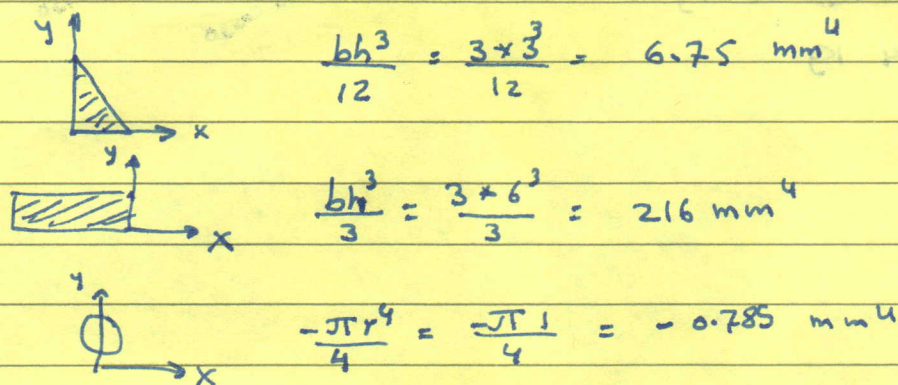 y
bh³/12 = 3*3³/12 = 6.75 mm⁴
x
y
bh³/3 = 3*6³/3 = 216 mm⁴
x
y
-πr⁴/4 = -π1/4 = -0.785 mm⁴
x